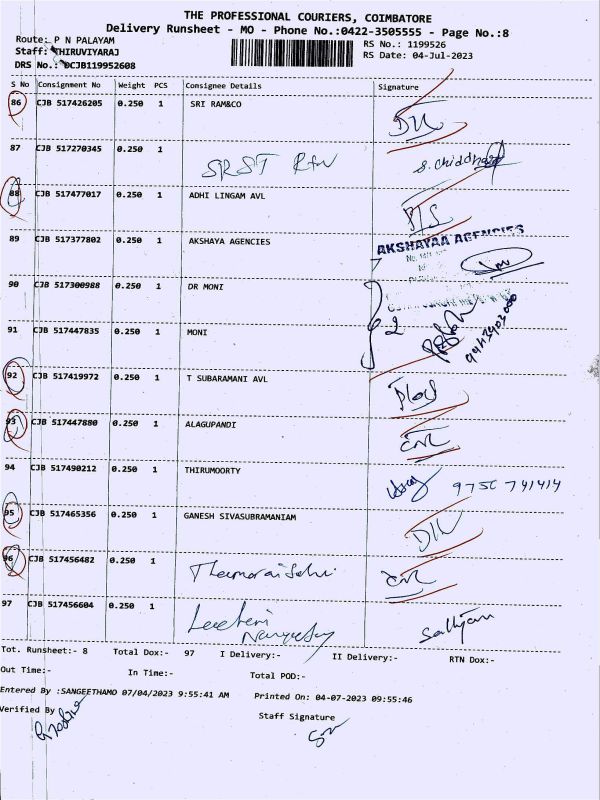 THE PROFESSIONAL COURIERS, COIMBATORE
Delivery Runsheet - MO - Phone No.:0422-3505555 - Page No.:8
Route: P N PALAYAM
RS No.: 1199526
Staff: THIRUVIYARAJ
RS Date: 04-Jul-2023
DRS No.: DCJB119952608
S No Consignment No Weight PCS Consignee Details Signature
86 CJB 517426205 0.250 1 SRI RAM&CO
87 CJB 517270345 0.250 1
SRST
88 CJB 517477017 0.250 1 ADHI LINGAM AVL
89 CJB 517377802 0.250 1 AKSHAYA AGENCIES
AKSHAYAA AGENCIES
90 CJB 517300988 0.250 1 DR MONI
91 CJB 517447835 0.250 1 MONI
2
92 CJB 517419972 0.250 1 T SUBARAMANI AVL
93 CJB 517447880 0.250 1 ALAGUPANDI
94 CJB 517490212 0.250 1 THIRUMOORTY
9750 741414
95 CJB 517465356 0.250 1 GANESH SIVASUBRAMANIAM
96 CJB 517456482 0.250 1
97 CJB 517456604 0.250 1
Tot. Runsheet:- 8 Total Dox:- 97 I Delivery:- II Delivery:- RTN Dox:-
Out Time:- In Time:- Total POD:-
Entered By :SANGEETHAMO 07/04/2023 9:55:41 AM Printed On: 04-07-2023 09:55:46
Verified By
Staff Signature